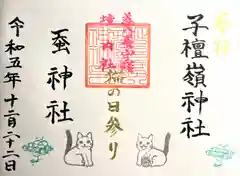 奉拝
子檀嶺神社
猫の日参り
蚕神社
令和五年十二月二十二日